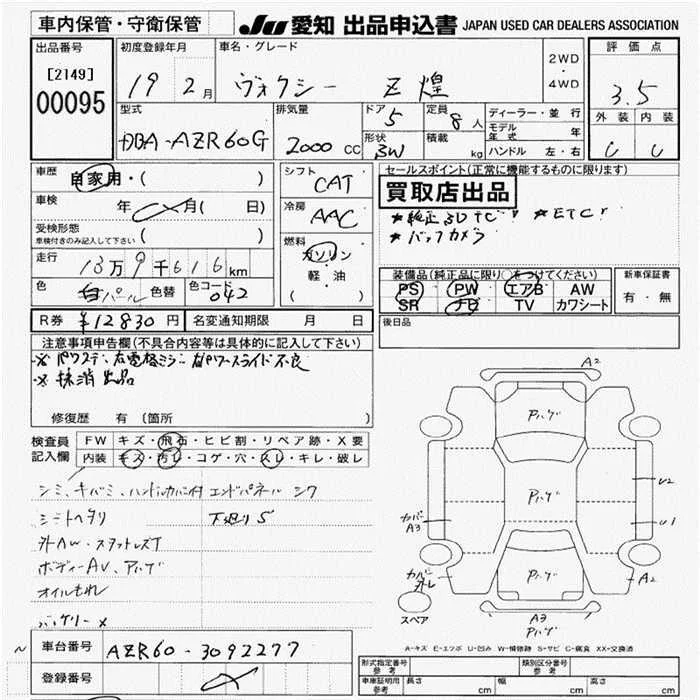 車内保管・守衛保管
JU 愛知 出品申込書 JAPAN USED CAR DEALERS ASSOCIATION
出品番号
[2149]
00095
初度登録年月
19 2月
車名・グレード
ヴォクシー Z 煌
2WD
・
4WD
評価点
3.5
外装 内装
C C
型式
DBA-AZR60G
排気量
2000 CC
ドア
5
形状
BW
定員
8人
積載
kg
ディーラー・並行
モデル年式 年
ハンドル 左・右
車歴
自家用・( )
車検
年 月( 日)
受検形態
車検付きのみ記入して下さい ( )
走行
13万9千616km
色
白パール
色替
色コード
042
シフト
CAT
冷房
AAC
燃料
ガソリン
・
軽・油
( )
セールスポイント(正常に機能するものに限ります)
買取店出品
*純正3DナビTV *ETC
*バックカメラ
装備品(純正品に限り○をつけてください)
PS PW エアB AW
SR ナビ TV カワシート
新車保証書
有・無
後日品
R券 ¥12830円
名変通知期限 月 日
注意事項申告欄(不具合内容等は具体的に記入して下さい)
※パワステ、右電格ミラー、右パワースライド不良
※抹消出品
修復歴 有(箇所 )
検査員記入欄
FW キズ・飛石・ヒビ割・リペア跡・X要
内装 キズ・汚レ・コゲ・穴・スレ・キレ・破レ
シミ、キバミ、ハンドルカバー付 エンドパネル シワ
シートヘタリ 下廻りS
外AW・スタッドレスT
ボディーAU、Pハゲ
オイルもれ
バッテリー×
A2
Pハゲ
Pハゲ
カバーA3
U2
U1
カバー外レ
Pハゲ
A2
スペア
A3
Pハゲ
A-キズ E-エクボ U-凹み W-補修跡 S-サビ C-腐食 XX-交換済
車台番号
AZR60-3092277
登録番号
形式指定番号 参考
類別区分番号 参考
車庫証明用 参考
長さ cm
幅 cm
高さ cm